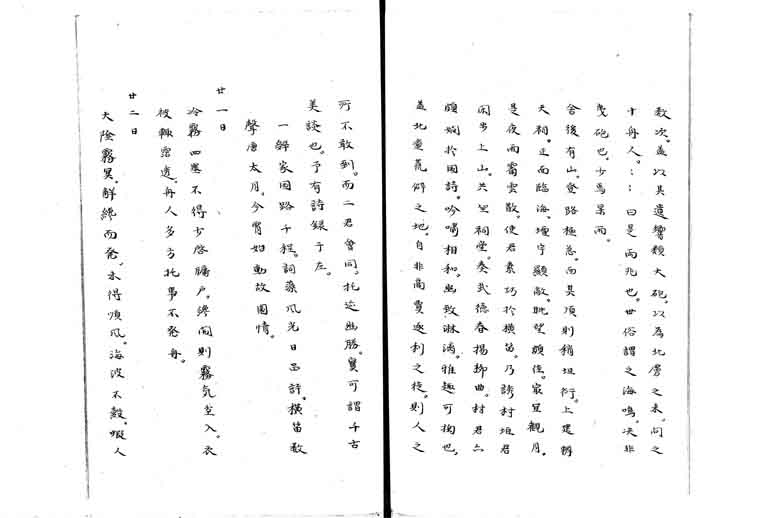 数次。蓋以其遺響類大砲、以為北虜之来、問之
舟人。舟人曰是雨兆也。世俗謂之海鳴、决非
曳砲也、少焉果雨。
舎後有山、登路極急。而其頂則稍坦衍。上建辨
天祠。正面臨海、壇宇顕敞。眺望頗佳。最宜観月。
是夜雨霽雲散。使君素巧於横笛。乃誘村垣君
同歩上山。共坐祠堂。奏武徳春楊柳曲。村君亦
頗嫻於国詩。吟嘯相和。幽致淋漓。雅趣可掬也。
蓋北夷荒僻之地。自非商賈逐利之徒。則人之
所不敢到。而二君曾同。托迹幽勝。実可謂千古
美談也。予有詩録于左。
一辞家国路千程。詞藻風光日西評。横笛数
聲唐太月。今宵始動故園情。
廿一日
冷霧四塞不得少啓牖戸。纔開則霧気坌入。衣
被輒霑透。舟人多方托事不発舟。
廿二日
大陰霧異。解纜而発、未得順風。海波不穀。蝦人